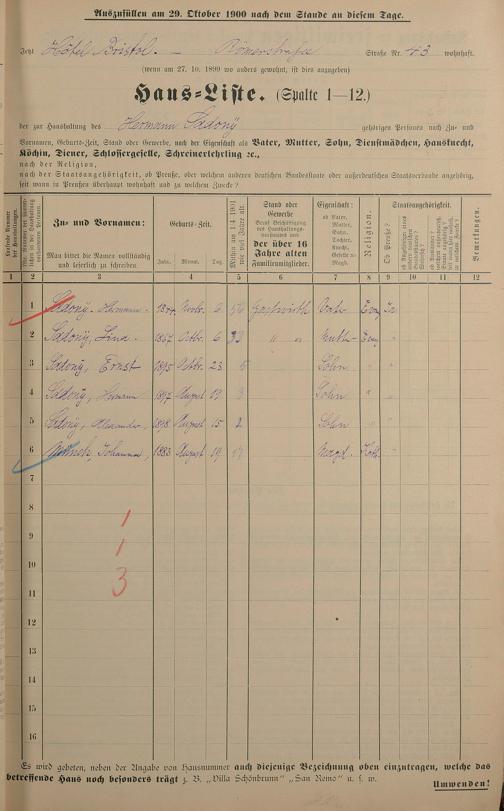 Auszufüllen am 29. Oktober 1900 nach dem Stande an diesem Tage.
Jetzt Hôtel Bristol. — Römerstraße Straße Nr. 43 wohnhaft.
(wenn am 27. 10. 1899 wo anders gewohnt, ist dies anzugeben)
Haus-Liste. (Spalte 1—12.)
der zur Haushaltung des Hermann Sadony gehörigen Personen nach Zu- und
Vornamen, Geburts-Zeit, Stand oder Gewerbe, nach der Eigenschaft als Vater, Mutter, Sohn, Dienstmädchen, Hausknecht,
Köchin, Diener, Schlossergeselle, Schreinerlehrling ꝛc.,
nach der Religion,
nach der Staatsangehörigkeit, ob Preuße, oder welchem anderen deutschen Bundesstaate oder außerdeutschen Staatsverbande angehörig,
seit wann in Preußen überhaupt wohnhaft und zu welchem Zwecke?
Zu- und Vornamen:
Man bittet die Namen vollständig
und leserlich zu schreiben.
Geburts-Zeit.
Jahr. Monat. Tag.
Mithin am 1/4 1901
wie viel Jahre alt
Stand oder
Gewerbe
der über 16
Jahre alten
Familienmitglieder.
Eigenschaft:
ob Vater,
Mutter,
Sohn,
Tochter,
Knecht,
Geselle,
Magd.
Religion.
Staatsangehörigkeit.
Ob Preuße?
Bemerkungen.
1 2 3 4 5 6 7 8 9 10 11 12
1 Sadony, Hermann 6 Gastwirth Vater Evg Ja
2 Sadony, Lina 1867 Octbr. 6 33 " " Mutter Evg
3 Sadony, Ernst 1895 Octbr. 23 5 Sohn " "
4 Sadony, Hermann 1897 August 19 3 Sohn " "
5 Sadony, Alexander, 1898 August 15 2 Sohn " "
6 Johanna, 1883 August 19 17 Magd. Kath. "
7
8
1
9
1
10
3
11
12
13
14
15
16
Es wird gebeten, neben der Angabe von Hausnummer auch diejenige Bezeichnung oben einzutragen, welche das
betreffende Haus noch besonders trägt z. B. „Villa Schönbrunn" „San Remo" u. s. w.
Umwenden!